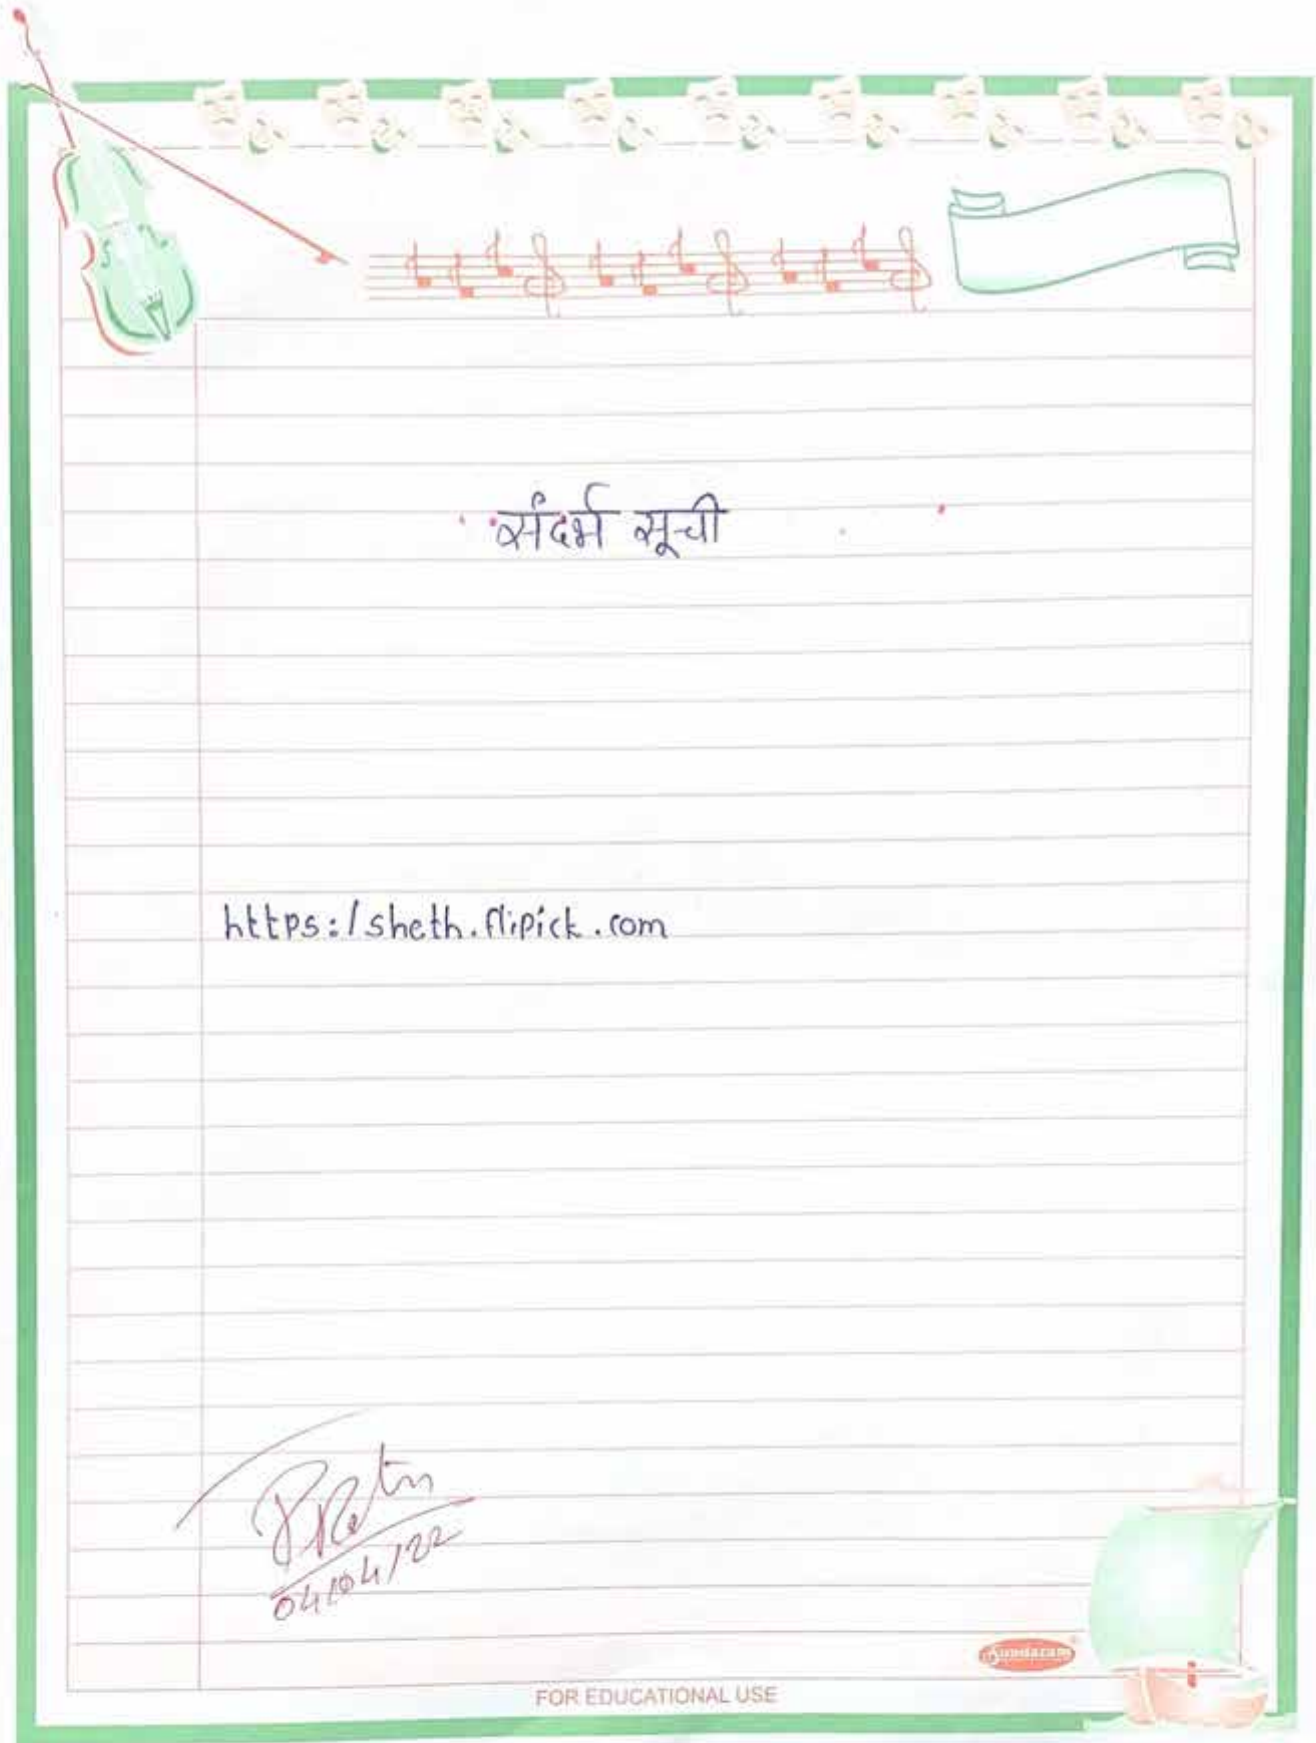 संदर्भ सूची
https:/sheth.flipick.com
04/04/22
Sundaram
FOR EDUCATIONAL USE